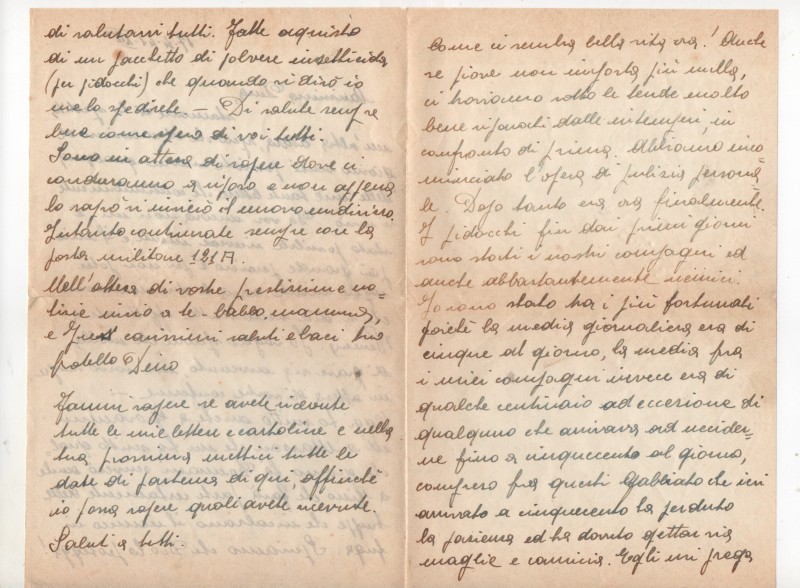 di salutarvi tutti. Fatte acquisto
di un pacchetto di polvere insetticida
(per pidocchi) che quando vi dirò io
me lo spedirete – Di salute sempre
bene come spero di voi tutti.
Sono in attesa di sapere dove ci
conduranno a riposo e non appena
lo saprò vi invierò il nuovo indirizzo.
Intanto continuate sempre con la
posta militare 121 A.
Nell'attesa di vostre prestissime no=
tizie invio a te - babbo, mamma,
e carissimi saluti e baci tuo
fratello Dino
Fammi sapere se avete ricevute
tutte le mie lettere e cartoline e nella
tua prossima mettici tutte le
date di partenza di qui, affinché
io possa sapere quali avete ricevute.
Saluti a tutti.
Come ci sembra bella vita ora! Anche
se piove non importa più nulla,
ci troviamo sotto le tende molto
bene riparati dalle intemperi, in
confronto di prima. Abbiamo inco=
minciato l'opera di pulizia persona=
le. Dopo tanto era ora finalmente.
I pidocchi fin dai primi giorni
sono stati i nostri compagni ed
anche abbastantemente nemici.
Io sono stato tra i più fortunati
poiché la media giornaliera era di
cinque al giorno, la media fra
i miei compagni invece era di
qualche centinaio ad eccezione di
qualcuno che arrivava ad uccider=
ne fino a cinquecento al giorno,
compreso fra questi Gabbiato che ieri
arrivato a cinquecento ha perduto
la pazienza ed ha dovuto gettar via
maglie e camicia. Egli mi prega